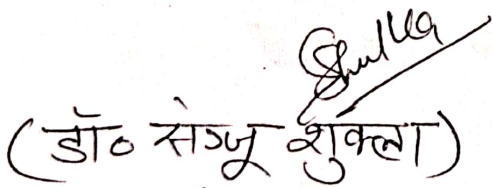 Shukla
(डॉ० संञ्जू शुक्ला)